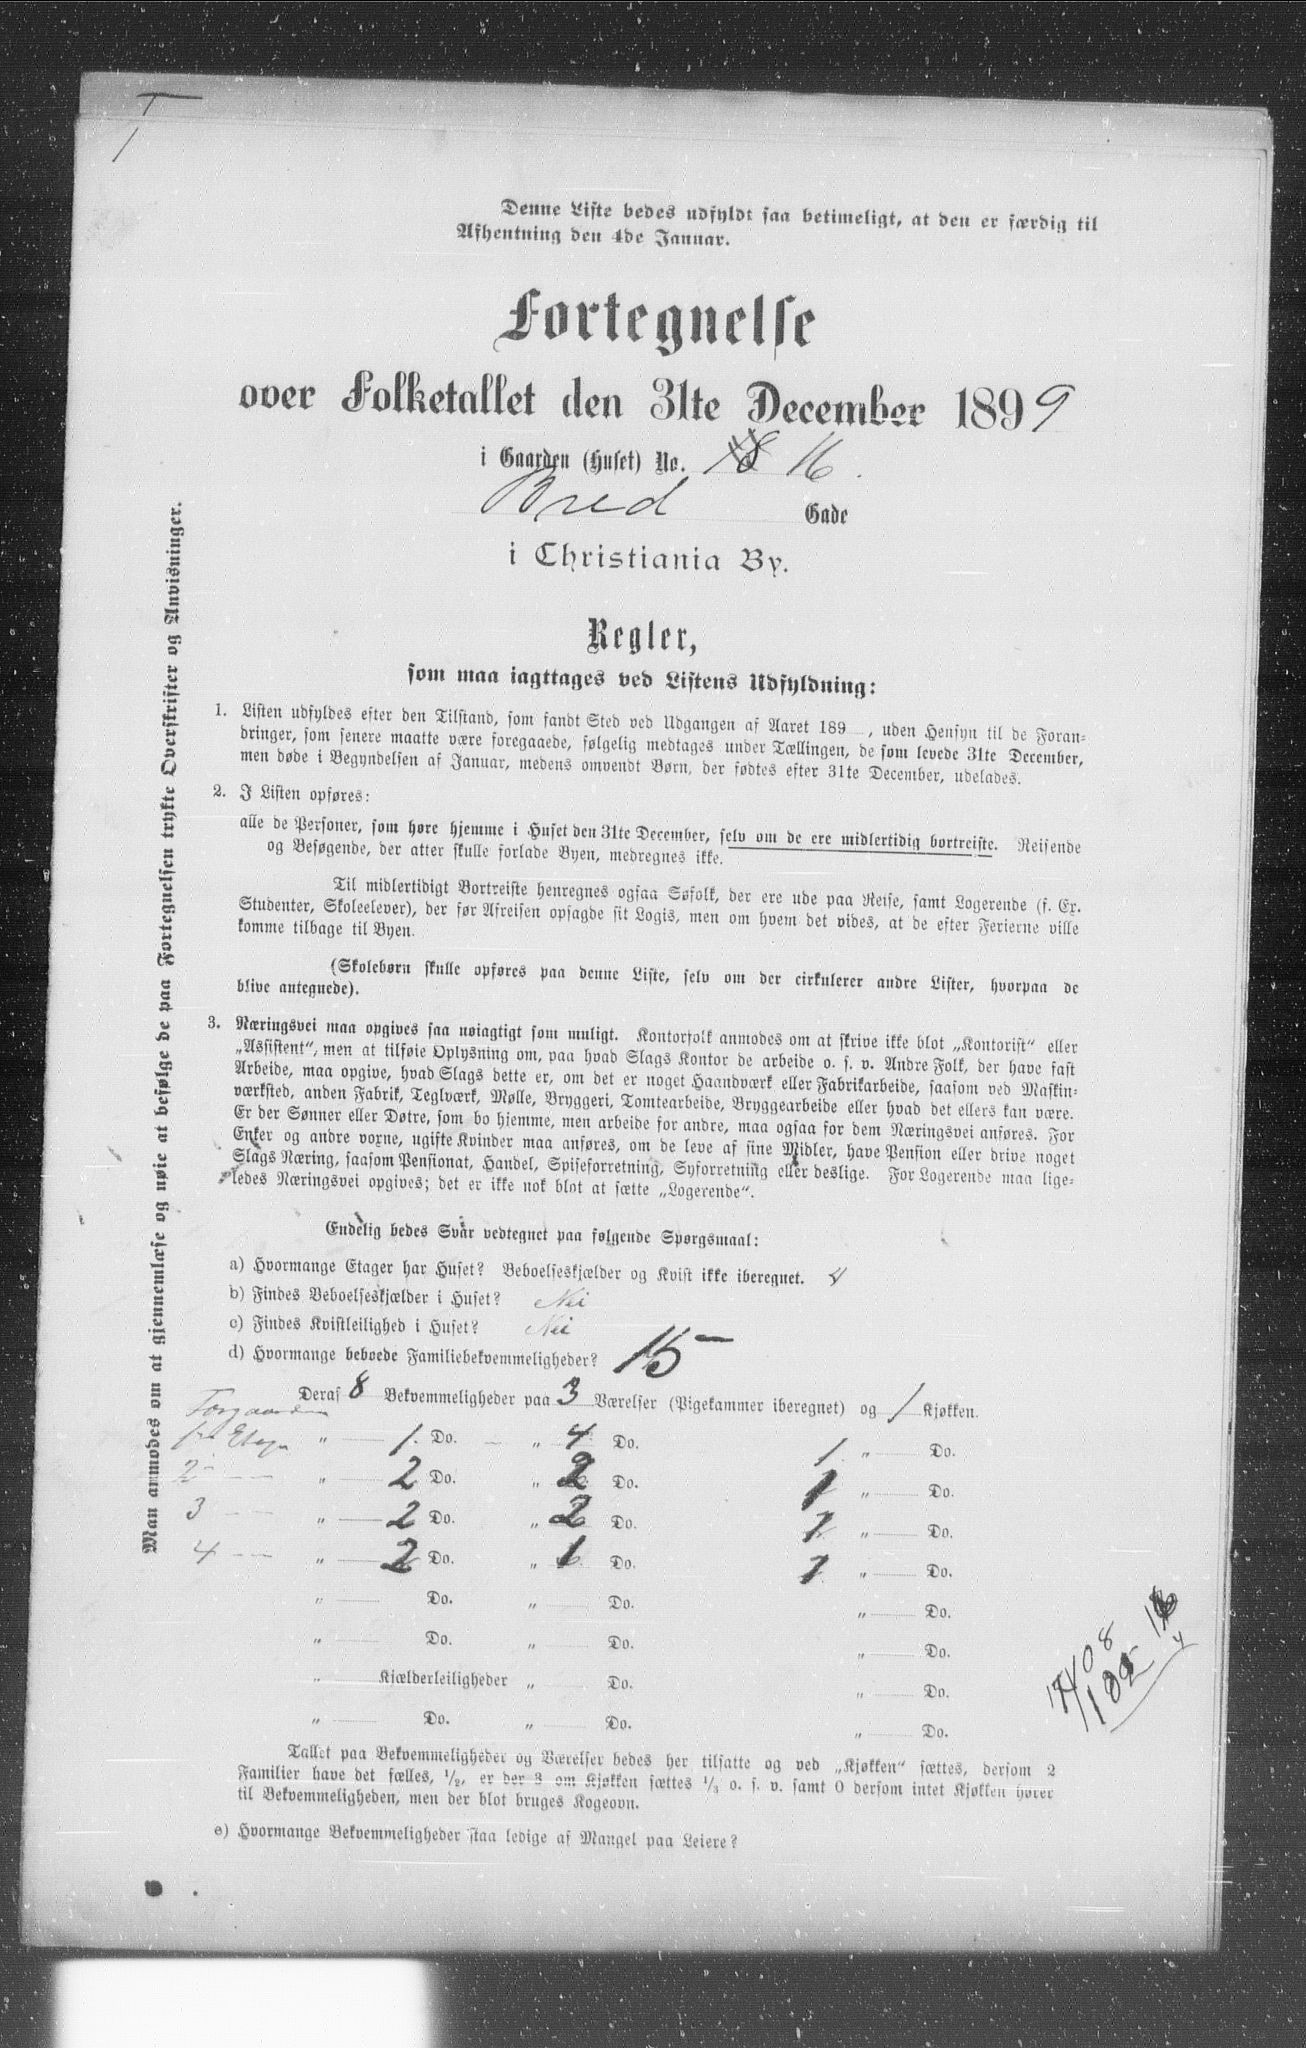 Denne Liste bedes udfyldt saa betimeligt, at den er færdig til
Afhentning den 4de Januar.
Fortegnelse
over Folketallet den 31te December 1899
i Gaarden (Huset) No. 16.
Bred Gade
i Christiania By.
Regler,
som maa iagttages ved Listens Udfyldning:
1. Listen udfyldes efter den Tilstand, som fandt Sted ved Udgangen af Aaret 189 , uden Hensyn til de Foran-
dringer, som senere maatte være foregaaede, følgelig medtages under Tællingen, de som levede 31te December,
men døde i Begyndelsen af Januar, medens omvendt Børn, der fødtes efter 31te December, udelades.
2. I Listen opføres:
alle de Personer, som høre hjemme i Huset den 31te December, selv om de ere midlertidig bortreiste. Reisende
og Besøgende, der atter skulle forlade Byen, medregnes ikke.
Til midlertidigt Bortreiste henregnes ogsaa Søfolk, der ere ude paa Reise, samt Logerende (f. Ex.
Studenter, Skoleelever), der før Afreisen opsagde sit Logis, men om hvem det vides, at de efter Ferierne ville
komme tilbage til Byen.
(Skolebørn skulle opføres paa denne Liste, selv om der cirkulerer andre Lister, hvorpaa de
blive antegnede).
3. Næringsvei maa opgives saa nøiagtigt som muligt. Kontorfolk anmodes om at skrive ikke blot „Kontorist“ eller
„Assistent“, men at tilføie Oplysning om, paa hvad Slags Kontor de arbeide o. s. v. Andre Folk, der have fast
Arbeide, maa opgive, hvad Slags dette er, om det er noget Haandværk eller Fabrikarbeide, saasom ved Maskin-
værksted, anden Fabrik, Teglværk, Mølle, Bryggeri, Tomtearbeide, Bryggearbeide eller hvad det ellers kan være.
Er der Sønner eller Døtre, som bo hjemme, men arbeide for andre, maa ogsaa for dem Næringsvei anføres. For
Enker og andre voxne, ugifte Kvinder maa anføres, om de leve af sine Midler, have Pension eller drive noget
Slags Næring, saasom Pensionat, Handel, Spiseforretning, Syforretning eller deslige. For Logerende maa lige-
ledes Næringsvei opgives; det er ikke nok blot at sætte „Logerende“.
Endelig bedes Svar vedtegnet paa følgende Spørgsmaal:
a) Hvormange Etager har Huset? Beboelseskjælder og Kvist ikke iberegnet. 4
b) Findes Beboelseskjælder i Huset? Nei
c) Findes Kvistleilighed i Huset? Nei
d) Hvormange beboede Familiebekvemmeligheder? 15
Deraf 8 Bekvemmeligheder paa 3 Værelser (Pigekammer iberegnet) og 1 Kjøkken.
Forgaarden
1ste Etage „ 1. Do. „ 4 Do. 1. „ Do.
2 „ 2 Do. „ 2 Do. 1 „ Do.
3 „ 2 Do. „ 2 Do. 1 „ Do.
4 „ 2 Do. „ 1 Do. 1 „ Do.
„ Do. „ Do. „ Do.
„ Do. „ Do. „ Do.
„ Kjælderleiligheder „ Do. „ Do.
„ Do. „ Do. „ Do.
Tallet paa Bekvemmeligheder og Værelser bedes her tilsatte og ved „Kjøkken“ sættes, dersom 2
Familier have det fælles, 1/2, er der 3 om Kjøkken sættes 1/3 o. s. v. samt 0 dersom intet Kjøkken hører
til Bekvemmeligheden, men der blot bruges Kogeovn.
e) Hvormange Bekvemmeligheder staa ledige af Mangel paa Leiere?
Man anmodes om at gjennemlæse og nøie at befølge de paa Fortegnelsen trykte Overskrifter og Anvisninger.